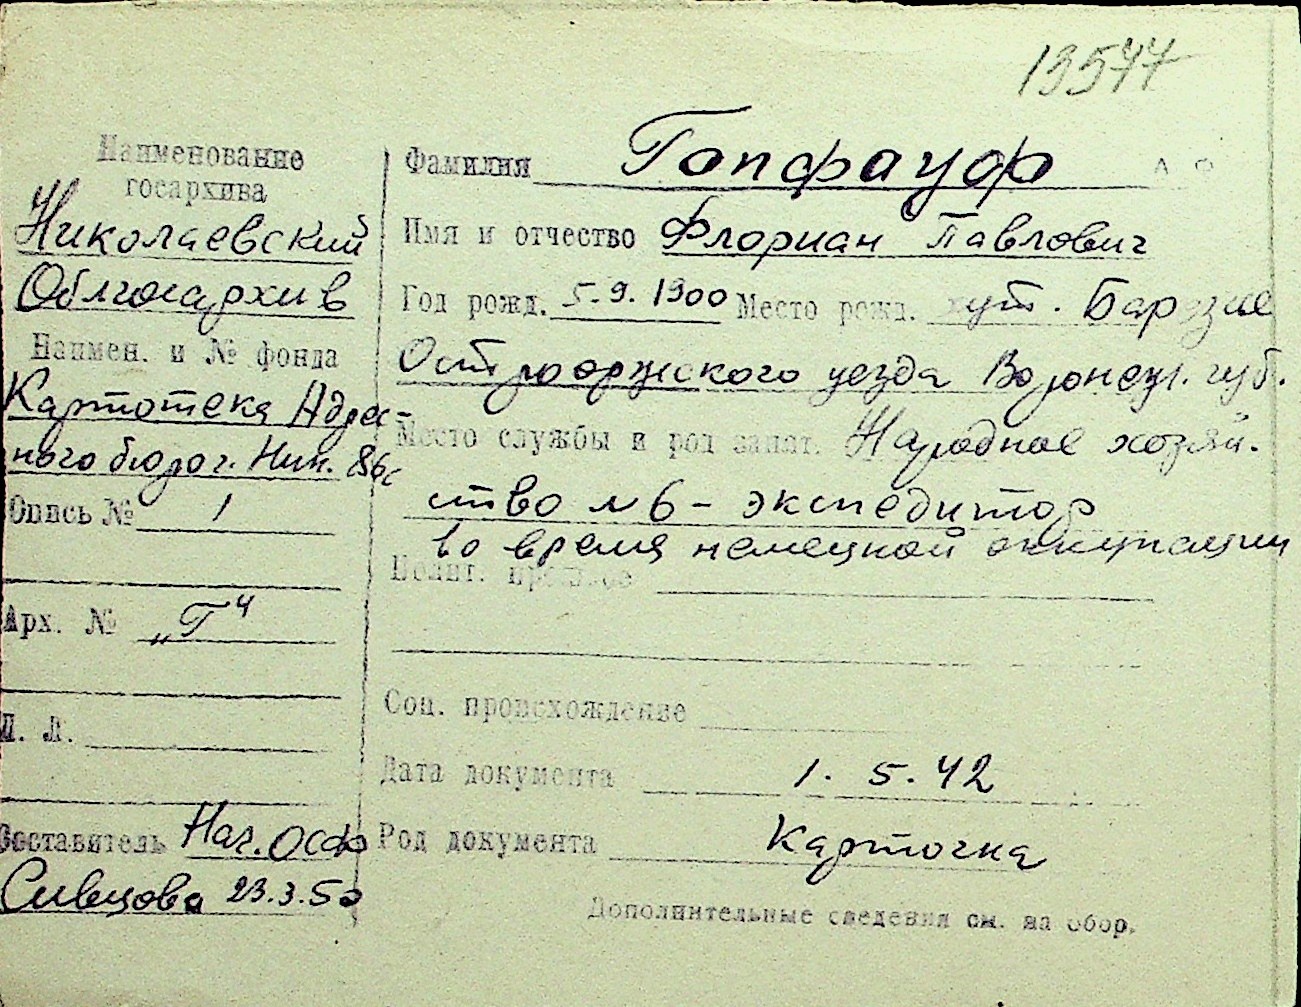 13577
Наименование
госархива
Николаевский
Облгосархив
Наимен. и № фонда
Картотека Адрес-
ного бюро г. Ник.
Опись № 1
Арх. № „Г"
Л. Л.
Составитель Нач. ОСФ
Сивцова 23.3.50
Фамилия Гопфауф
Имя и отчество Флориан Павлович
Год рожд. 5.9.1900 Место рожд. хут.
Острогожского уезда Воронеж. губ.
Место службы и род занят. Народное хозяй-
ство № 6 - экспедитор
во время немецкой оккупации
Полит. прошлое
Соц. происхождение
Дата документа 1. 5. 42
Род документа Карточка
Дополнительные сведения см. на обор.